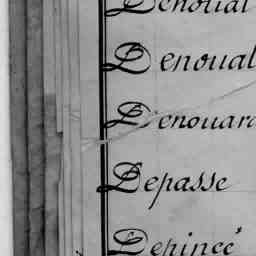 Denoual
Denoual
Denouard
Depasse
Depincé